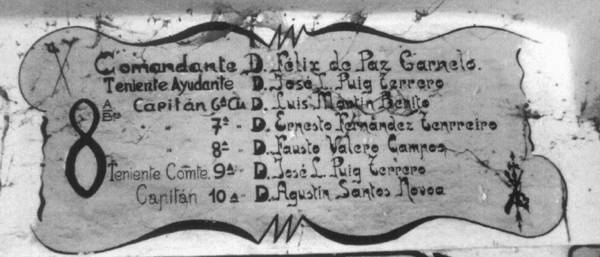 Comandante D. Félix de Paz Garnelo.
Teniente Ayudante D. José L. Puig Terrero
8 Capitán 6ª Cía D. Luis Martín Benito
" 7ª - D. Ernesto Fernández Tenrreiro
" 8ª - D. Fausto Valero Campos
Teniente Comte. 9ª - D. José L. Puig Terrero
Capitán 10ª - D. Agustín Santos Novoa